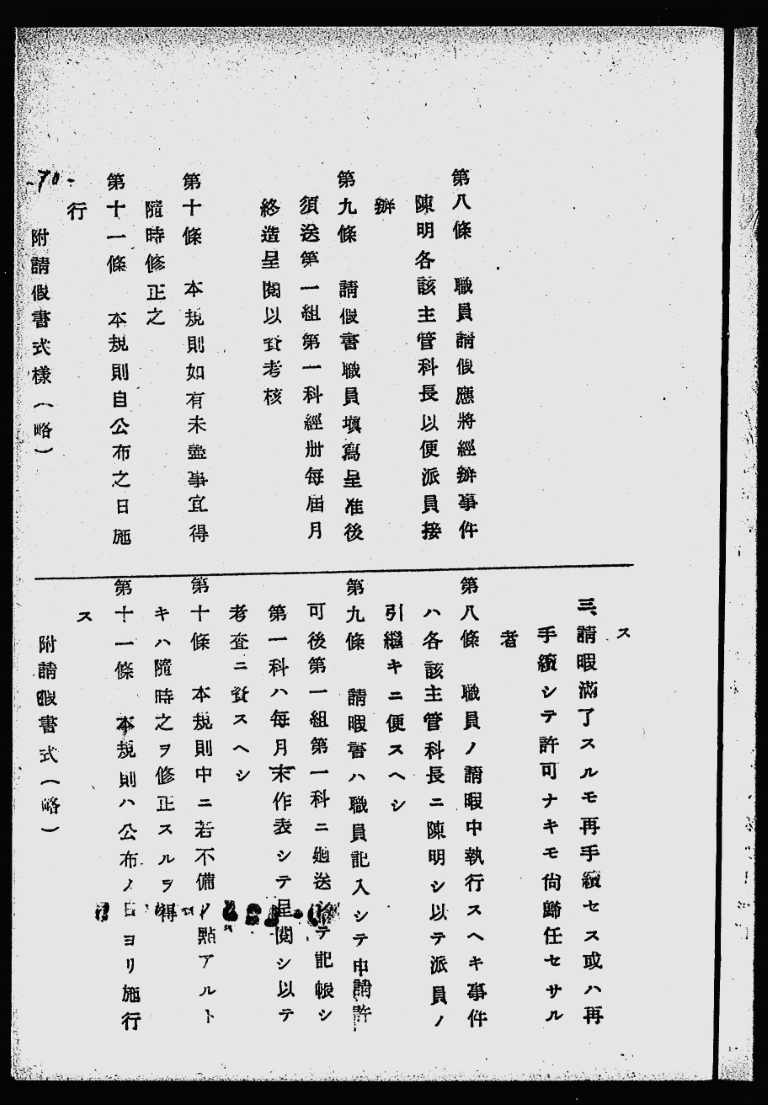 第八條　職員請假應將經辦事件
陳明各該主管科長以便派員接
辦
第九條　請假書職員塡寫呈准後
須送第一組第一科經册每屆月
終造呈閱以資考核
第十條　本規則如有未盡事宜得
隨時修正之
第十一條　本規則自公布之日施
行
附請假書式樣（略）
-70-
ス
三、請暇滿了スルモ再手續セス或ハ再
手續シテ許可ナキモ尙歸任セサル
者
第八條　職員ノ請暇中執行スヘキ事件
ハ各該主管科長ニ陳明シ以テ派員ノ
引繼キニ便スヘシ
第九條　請暇書ハ職員記入シテ申請許
可後第一組第一科ニ送シテ記帳シ
第一科ハ每月末作表シテ呈閱シ以テ
考査ニ資スヘシ
第十條　本規則中ニ若不備ノ點アルト
キハ隨時之ヲ修正スルヲ得
第十一條　本規則ハ公布ノ日ヨリ施行
ス
附請暇書式（略）